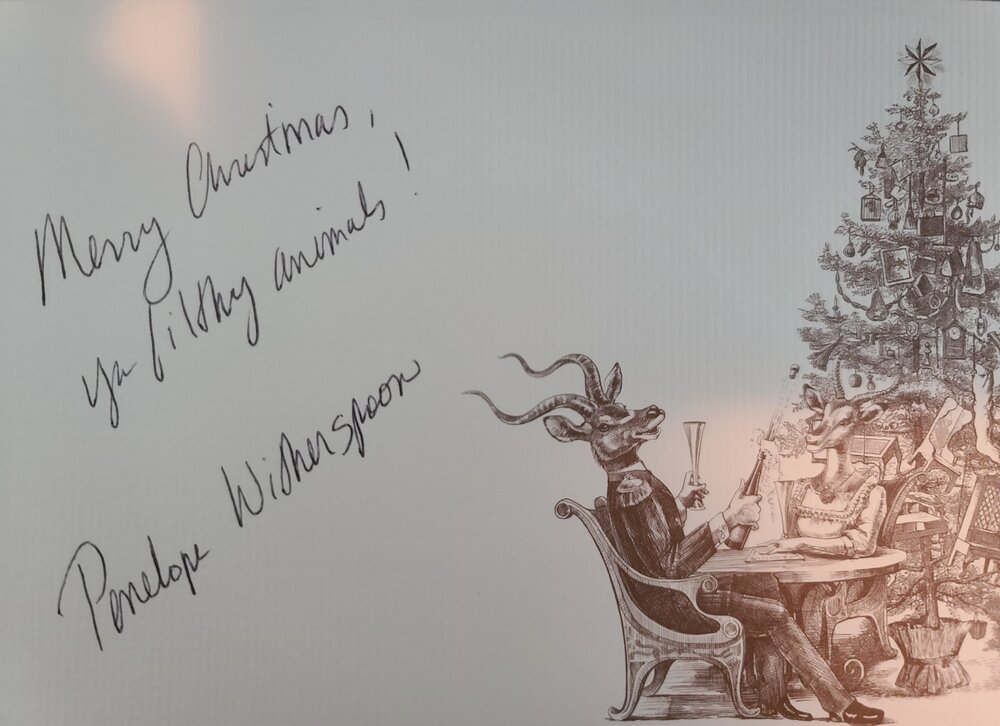 Merry Christmas,
ya filthy animals!
Penelope Witherspoon